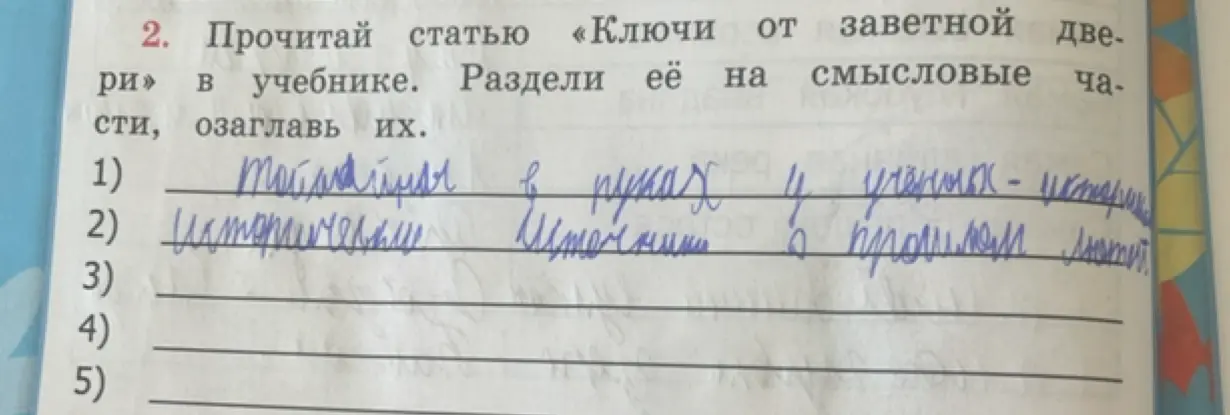 2. Прочитай статью «Ключи от заветной две-
ри» в учебнике. Раздели её на смысловые ча-
сти, озаглавь их.
1) в руках у учёных - историков
2) Исторические Источники о прошлом людей.
3)
4)
5)